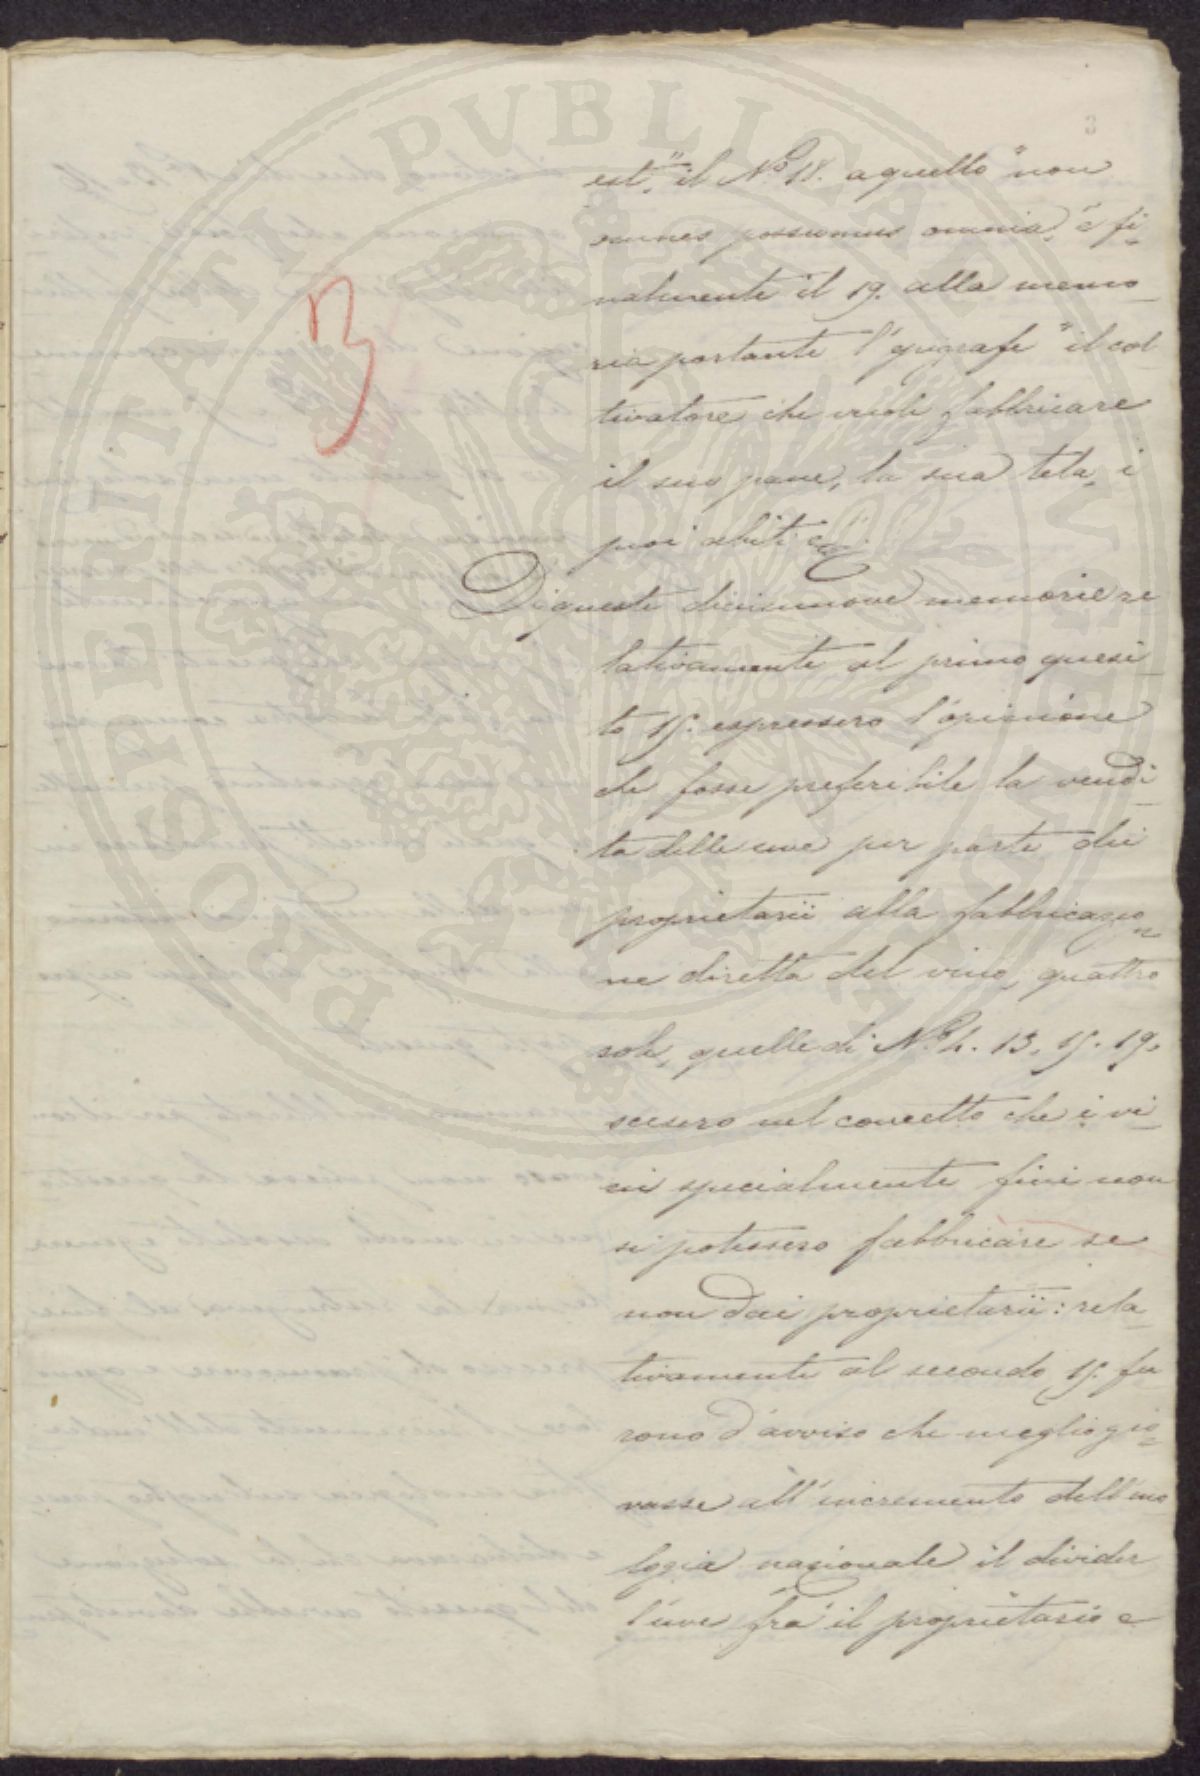 3
est,, il N.º 18. a quello "non
omnes possumus omnia,, e fi_
nalmente il 19. alla memo_
ria portante l'epigrafe "il col
tivatore che vuole fabbricare
il suo pane, la sua tela, i
suoi abiti
Di queste diciannove memorie re
lativamente al primo quesi_
to 15. espressero l'opinione
che fosse preferibile la vendi_
ta delle uve per parte dei
proprietarii alla fabbricazio_
ne diretta del vino, quattro
sole, quelle di N.º 4. 13. 15. 19.
scesero nel concetto che i vi_
ni specialmente fini non
si potessero fabbricare se
non dai proprietarii: rela_
tivamente al secondo, 15. fu_
rono d'avviso che meglio gio_
vasse all'incremento dell'eno
logia nazionale il divider
l'uve fra il proprietario e
3
PROSPERITATI PUBLICAE AUGENDAE